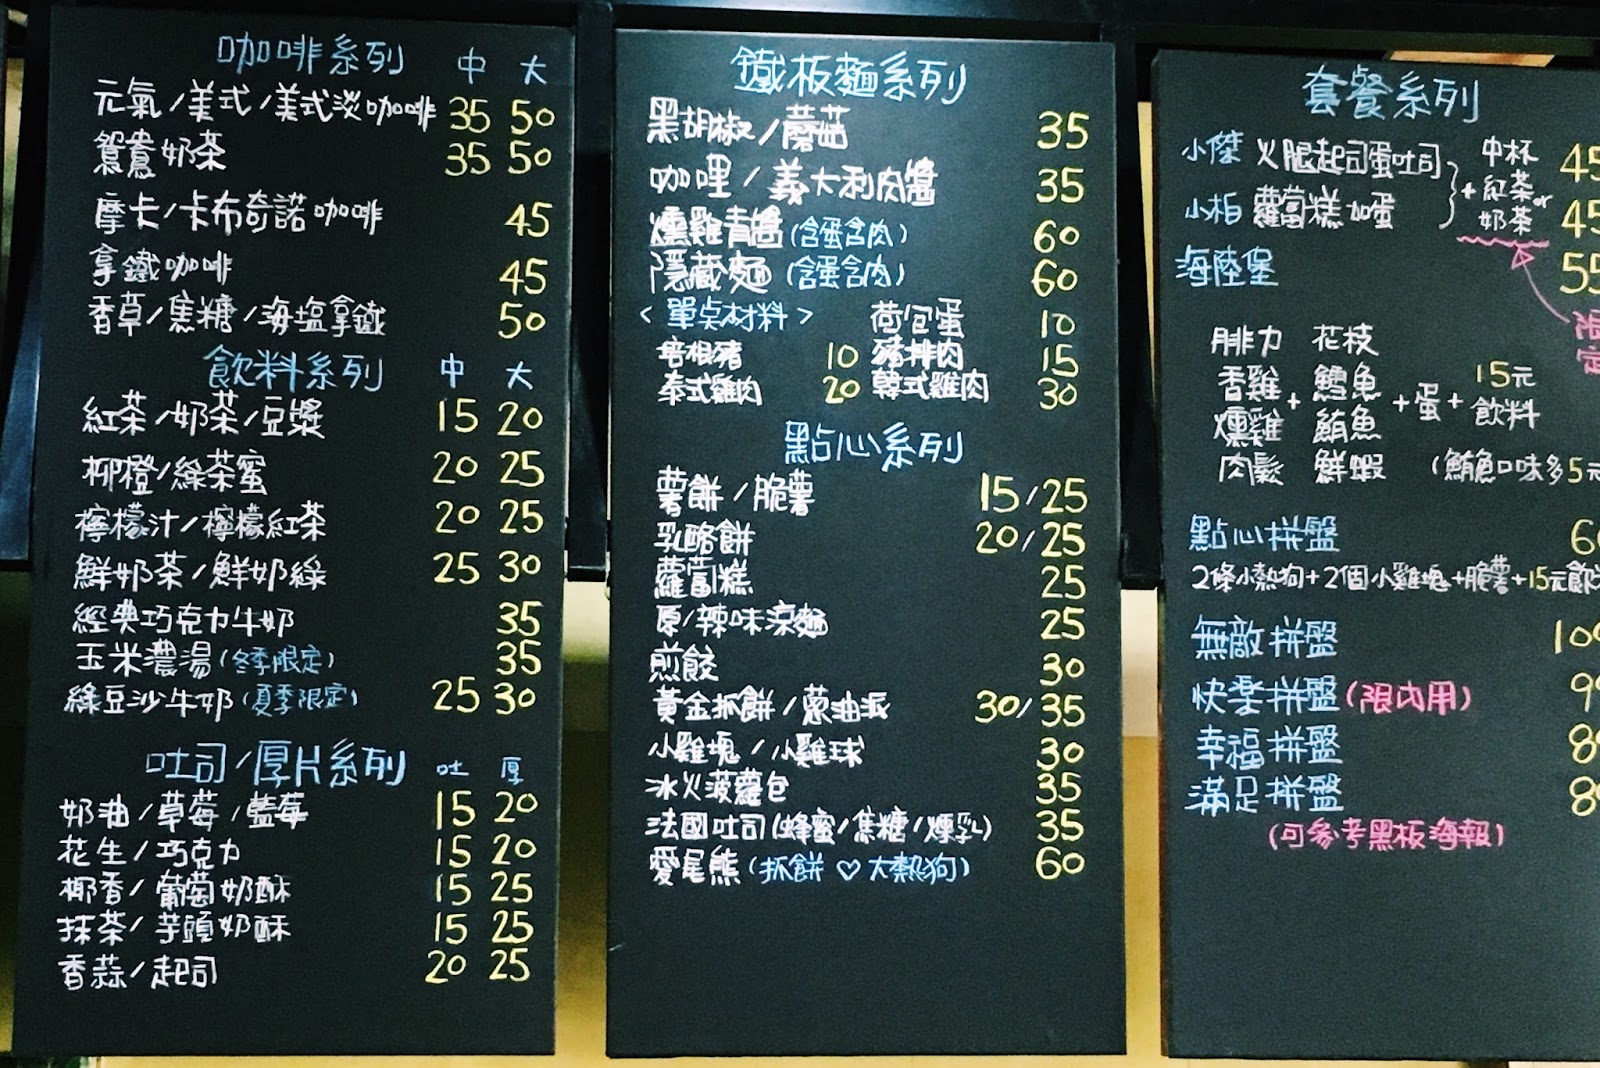 咖啡系列 中 大
元氣/美式/美式淡咖啡 35 50
鴛鴦奶茶 35 50
摩卡/卡布奇諾咖啡 45
拿鐵咖啡 45
香草/焦糖/海塩拿鐵 50
飲料系列 中 大
紅茶/奶茶/豆漿 15 20
柳橙/綠茶蜜 20 25
檸檬汁/檸檬紅茶 20 25
鮮奶茶/鮮奶綠 25 30
經典巧克力牛奶 35
玉米濃湯(冬季限定) 35
綠豆沙牛奶(夏季限定) 25 30
吐司/厚片系列 吐 厚
奶油/草莓/藍莓 15 20
花生/巧克力 15 20
椰香/葡萄奶酥 15 25
抹茶/芋頭奶酥 15 25
香蒜/起司 20 25
鐵板麵系列
黑胡椒/蘑菇 35
咖哩/義大利肉醬 35
燻雞青醬(含蛋含肉) 60
隱藏麵(含蛋含肉) 60
<單點材料> 荷包蛋 10
培根豬 10 豬排肉 15
泰式雞肉 20 韓式雞肉 30
點心系列
薯餅/脆薯 15/25
乳酪餅 20/25
蘿蔔糕 25
原/辣味涼麵 25
煎餃 30
黃金抓餅/蔥油派 30/35
小雞塊/小雞球 30
冰火菠蘿包 35
法國吐司(蜂蜜/焦糖/煉乳) 35
愛尾熊(抓餅♡大熱狗) 60
套餐系列
小傑 火腿起司蛋吐司 45
小柏 蘿蔔糕加蛋 45
+ 中杯
紅茶or
奶茶
海陸堡 55
限
定
腓力 花枝
香雞 + 鱈魚 + 蛋 + 15元
燻雞 鮪魚 飲料
肉鬆 鮮蝦 (鮪魚口味多5元
點心拼盤 6
2條小熱狗+2個小雞塊+脆薯+15元飲
無敵拼盤 10
快樂拼盤(限內用) 9
幸福拼盤 8
滿足拼盤 8
(可參考黑板海報)